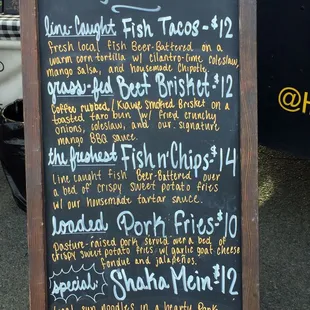 line-Caught Fish Tacos-$12
fresh local fish Beer-Battered on a
warm corn tortilla w/ cilantro-lime coleslaw,
mango salsa, and housemade Chipotle.
grass-fed Beef Brisket-$12
Coffee rubbed/Kiawe Smoked Brisket on a
toasted taro bun w/ fried crunchy
onions, coleslaw, and our signature
mango BBQ sauce.
the freshest Fish n' Chips-$14
Line caught fish Beer-Battered over
a bed of crispy sweet potato fries
w/ our housemade tartar sauce.
loaded Pork Fries-$10
Pasture-raised pork served over a bed of
crispy sweet potato fries w/ garlic goat cheese
fondue and jalapeños.
special: Shaka Mein-$12
noodles in a hearty Pork
@